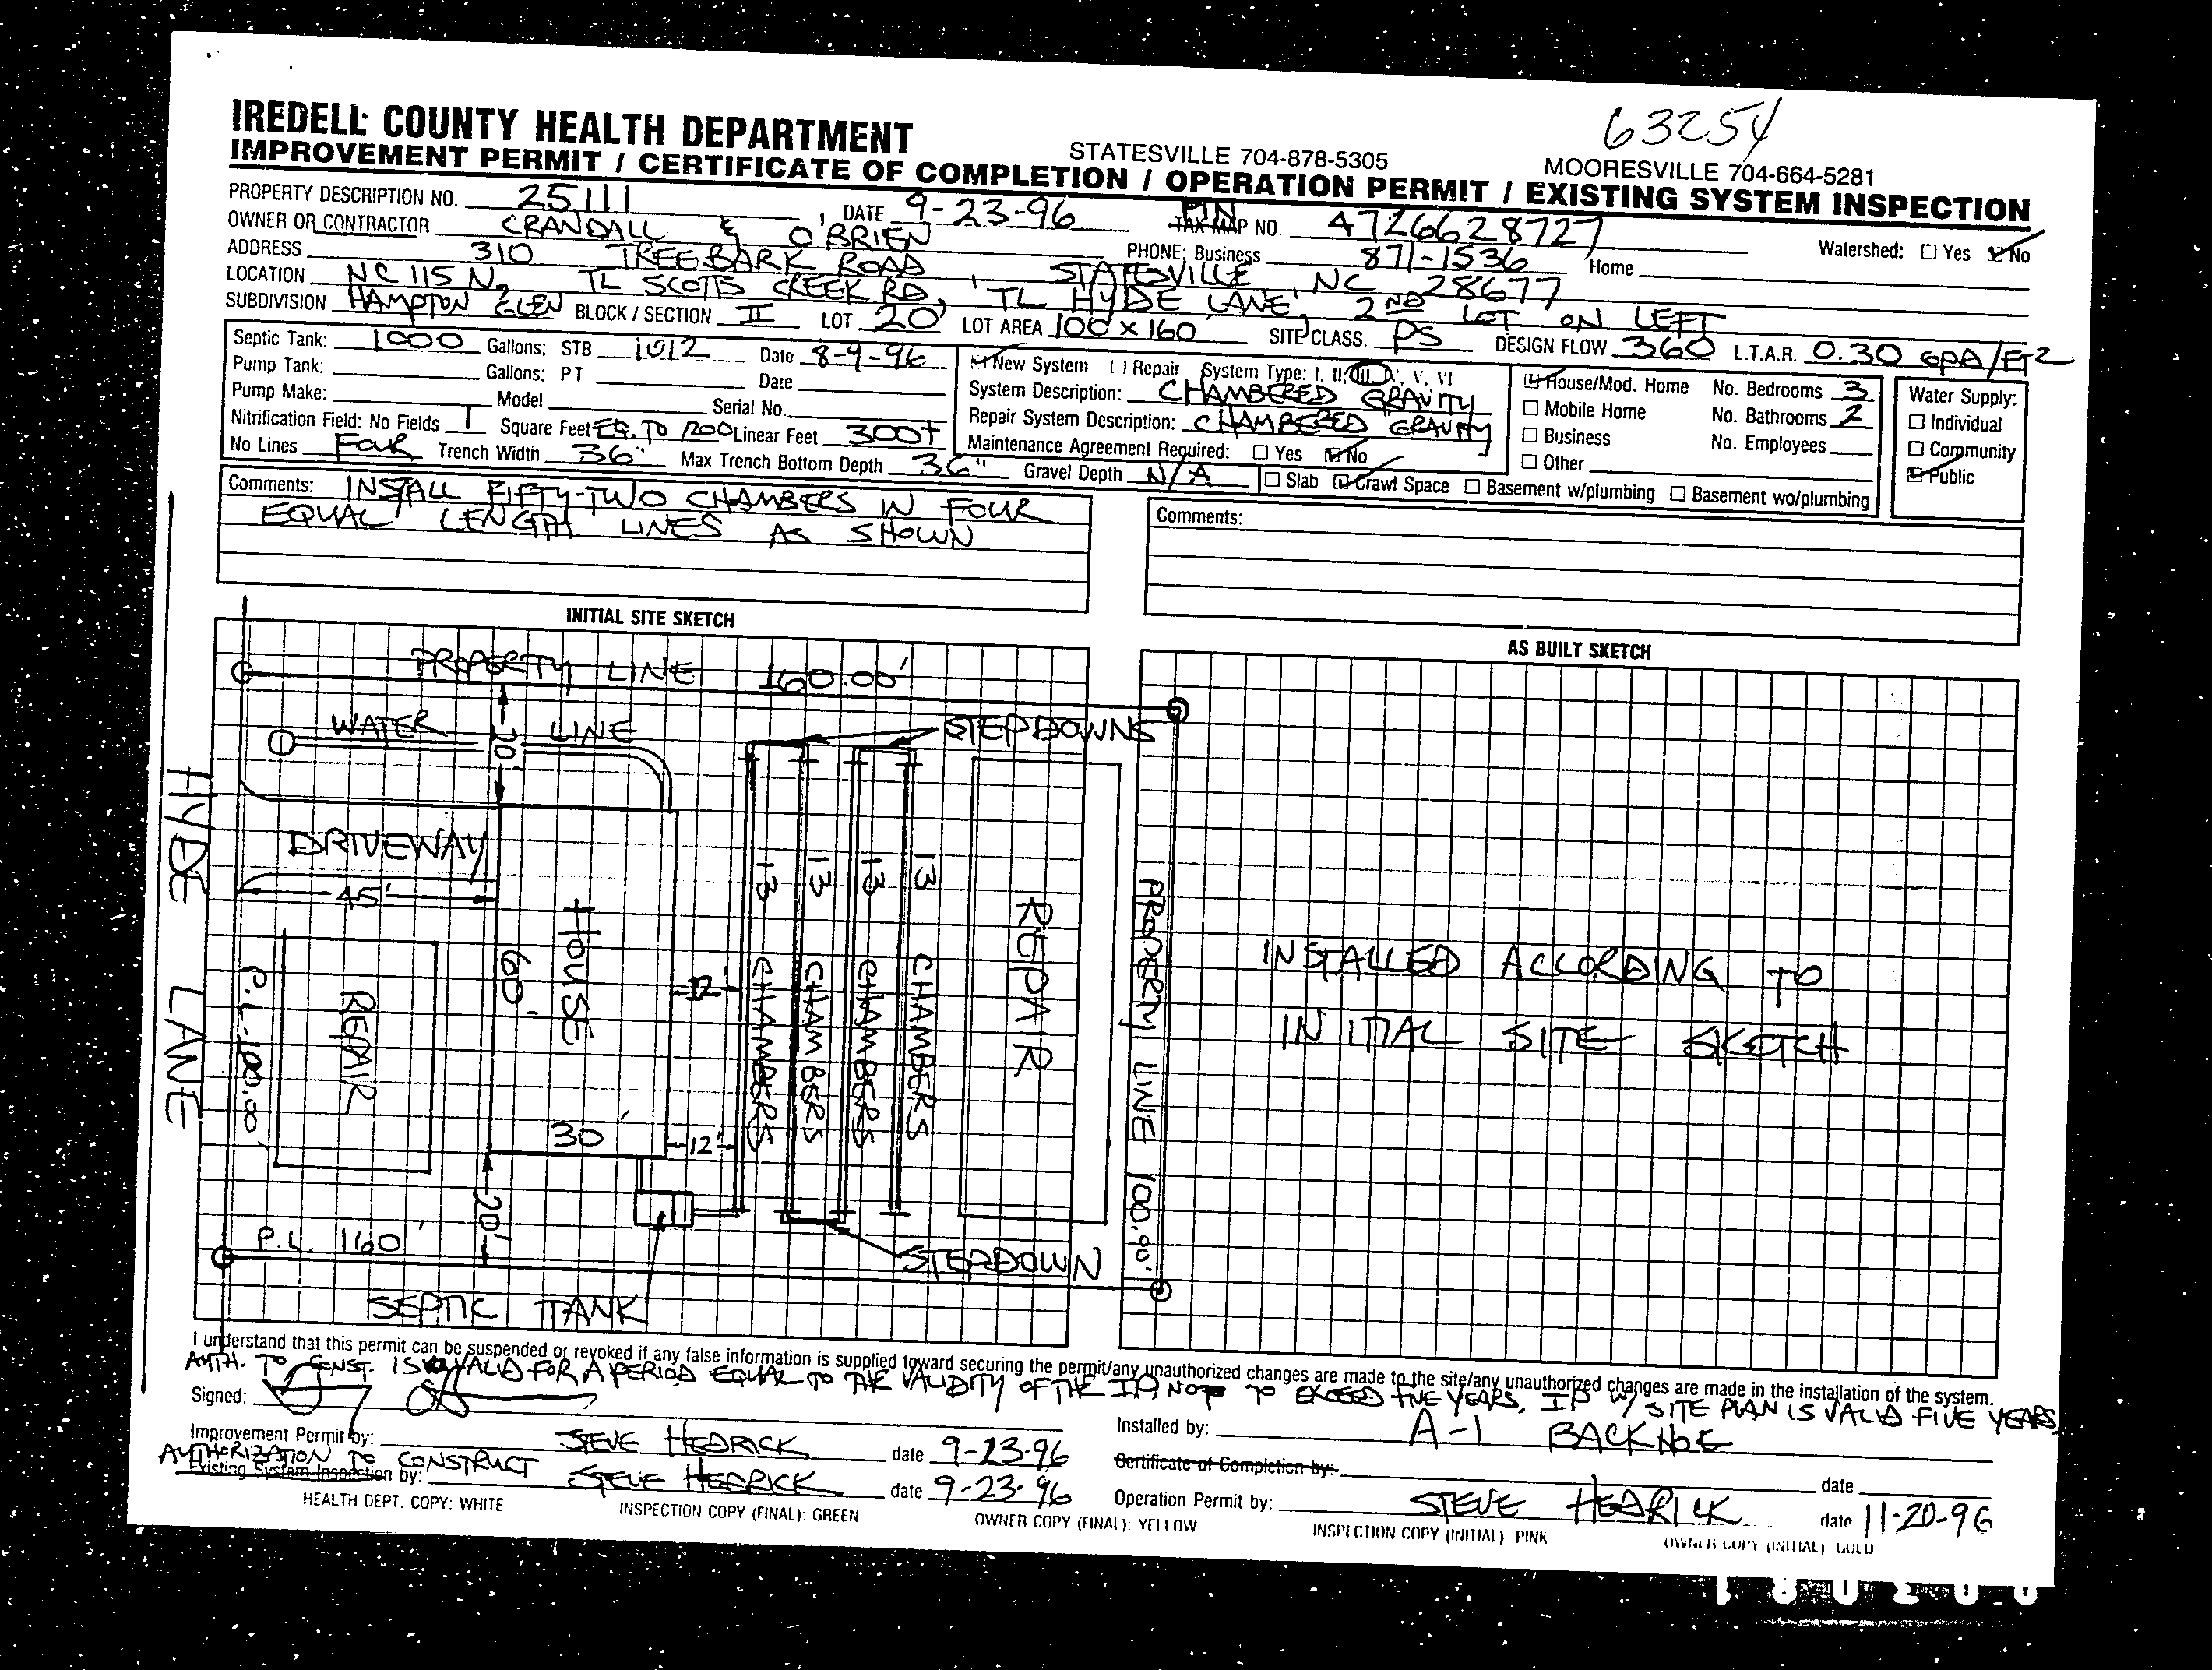 63254
IREDELL COUNTY HEALTH DEPARTMENT
STATESVILLE 704-878-5305
MOORESVILLE 704-664-5281
IMPROVEMENT PERMIT / CERTIFICATE OF COMPLETION / OPERATION PERMIT / EXISTING SYSTEM INSPECTION
PROPERTY DESCRIPTION NO. 25111 DATE 9-23-96 PIN TAX MAP NO. 4726628727 Watershed: ☐ Yes ☑ No
OWNER OR CONTRACTOR CRANDALL & O'BRIEN PHONE: Business 871-1536 Home
ADDRESS 310 TREEBARK ROAD, STATESVILLE, NC 28677
LOCATION NC 115 N, TL SCOTTS CREEK RD, TL HYDE LANE, 2ND LOT ON LEFT
SUBDIVISION HAMPTON GLEN BLOCK / SECTION II LOT 20 LOT AREA 100 X 160 SITE CLASS. PS DESIGN FLOW 360 L.T.A.R. 0.30 GPD/FT2
Septic Tank: 1000 Gallons; STB 1012 Date 8-9-96
Pump Tank: Gallons; PT Date
Pump Make: Model Serial No.
Nitrification Field: No Fields 1 Square Feet EQ. TO 1200 Linear Feet 300+
No Lines FOUR Trench Width 36" Max Trench Bottom Depth 36" Gravel Depth N/A
☑ New System ( ) Repair System Type: I, II, III, IV, V, VI
System Description: CHAMBERED GRAVITY
Repair System Description: CHAMBERED GRAVITY
Maintenance Agreement Required: ☐ Yes ☑ No
☑ House/Mod. Home No. Bedrooms 3
☐ Mobile Home No. Bathrooms 2
☐ Business No. Employees
☐ Other
☐ Slab ☑ Crawl Space ☐ Basement w/plumbing ☐ Basement wo/plumbing
Water Supply:
☐ Individual
☐ Community
☑ Public
Comments: INSTALL FIFTY-TWO CHAMBERS IN FOUR
EQUAL LENGTH LINES AS SHOWN
Comments:
INITIAL SITE SKETCH
PROPERTY LINE 160.00'
WATER LINE
20'
STEPDOWNS
DRIVEWAY
45'
HYDE LANE
P.L. 100.00'
REPAIR
HOUSE
60'
30'
12'
12'
13 CHAMBERS
13 CHAMBERS
13 CHAMBERS
13 CHAMBERS
REPAIR
PROPERTY LINE 100.00'
20'
P.L. 160'
STEPDOWN
SEPTIC TANK
AS BUILT SKETCH
INSTALLED ACCORDING TO
INITIAL SITE SKETCH
I understand that this permit can be suspended or revoked if any false information is supplied toward securing the permit/any unauthorized changes are made to the site/any unauthorized changes are made in the installation of the system.
AUTH. TO CONST. IS VALID FOR A PERIOD EQUAL TO THE VALIDITY OF THE I.P. NOT TO EXCEED FIVE YEARS. IP W/ SITE PLAN IS VALID FIVE YEARS.
Signed:
Improvement Permit by: STEVE HEDRICK date 9-23-96
AUTHORIZATION TO CONSTRUCT
Existing System Inspection by: STEVE HEDRICK date 9-23-96
Installed by: A-1 BACKHOE
Certificate of Completion by: date
Operation Permit by: STEVE HEDRICK date 11-20-96
HEALTH DEPT. COPY: WHITE INSPECTION COPY (FINAL): GREEN OWNER COPY (FINAL): YELLOW INSPECTION COPY (INITIAL) PINK OWNER COPY (INITIAL) GOLD